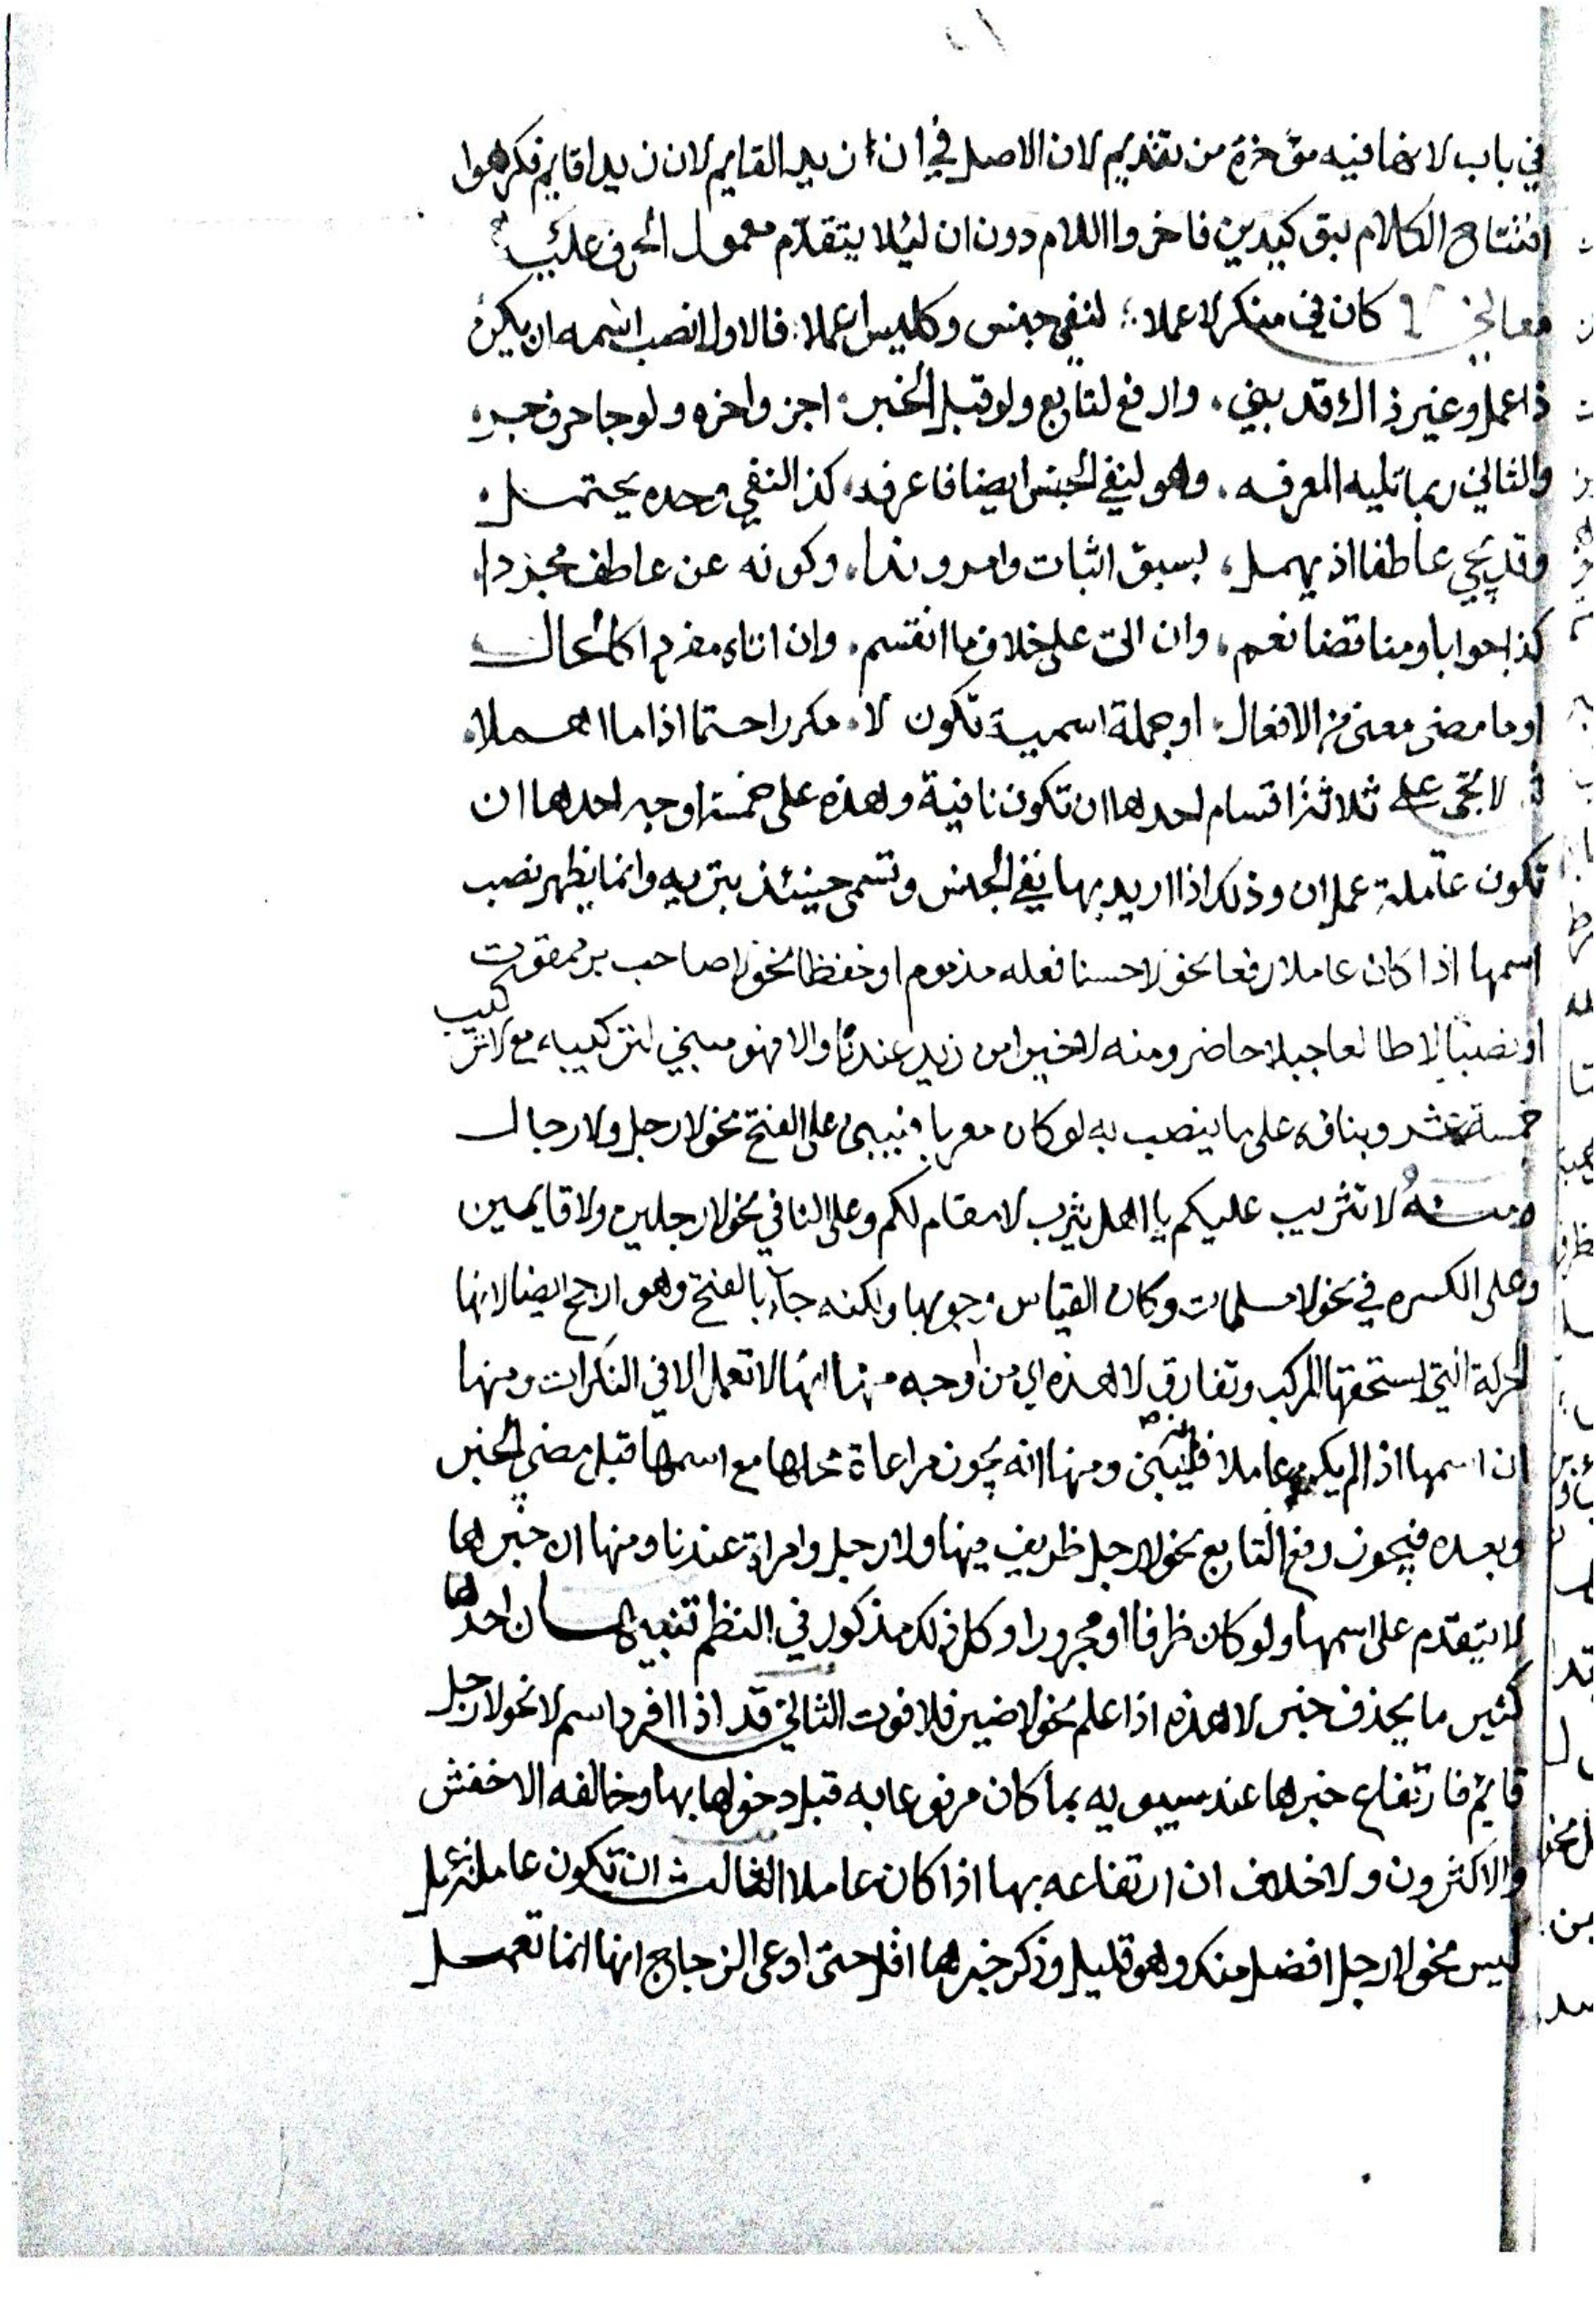 في باب لانها فيه مؤخرة من تقديم لان الاصل في ان زيدا لقايم لان زيدا قايم فكرهوا
افتتاح الكلام بتوكيدين فاخروا اللام دون ان ليلا يتقدم معمول الحرف عليه
كان في منكر لا عملا لنفي جنس وكليس اعملا فالاول انصب اسمه ان يكن
ذا عمل وغير ذاك قد بني وارفع لتابع ولو قبل الخبر اجز واخره ولو جا حرف جر
والثاني ربما تليه المعرفه وهو لنفي الجنس ايضا فاعرفه كذا لنفي وحده يحتمل
وقد يجي عاطفا اذ يهمل بسبق اثبات وامر وندا وكونه عن عاطف مجردا
كذا جوابا ومناقضا نعم وان اتى على خلاف ما انقسم وان اتاه مفردا كالحال
او ما مضى معنى من الافعال او جملة اسمية تكون لا مكررا حتما اذا ما اهملا
لا تجي على ثلاثة اقسام احدها ان تكون نافية وهذه على خمسة اوجه احدها ان
تكون عاملة عمل ان وذلك اذا اريد بها نفي الجنس وتسمى حينئذ تبريه وانما يظهر نصب
اسمها اذا كان عاملا رفعا نحو لا حسنا فعله مذموم او خفظا نحو لا صاحب بر ممقوت
او نصبا لا طالعا جبلا حاضر ومنه لا خيرا من زيد عندنا والا فهو مبني لتركيبه مع لا تركيب
خمسة عشر وبناؤه على ما ينصب به لو كان معربا فيبنى على الفتح نحو لا رجل ولا رجال
ومنه لا تثريب عليكم يا اهل يثرب لا مقام لكم وعلى اليا في نحو لا رجلين ولا قايمين
وعلى الكسره في نحو لا مسلمات وكان القياس وجوبها ولكنه جاء بالفتح وهو ارجح ايضا لانها
الحركة التي يستحقها المركب وتفارق لا هذه ان من اوجه منها انها لا تعمل الا في النكرات ومنها
ان اسمها اذا لم يكن عاملا فيبنى ومنها انه يجوز مراعاة محلها مع اسمها قبل مضي الخبر
وبعده فيجوز رفع التابع نحو لا رجل ظريف فيها ولا رجل وامراة عندنا ومنها ان خبرها
لا يتقدم على اسمها ولو كان ظرفا او مجرورا وكل ذلك مذكور في النظم تنبيهان احدها
كثير ما يحذف خبر لا هذه اذا علم نحو لا ضير فلا فوت الثاني قد اذا افرد اسم لا نحو لا رجل
قايم فارتفاع خبرها عند سيبويه بما كان مرفوعا به قبل دخولها بها وخالفه الاخفش
والاكثرون ولا خلاف ان ارتفاعه بها اذا كان عاملا الثالث ان تكون عاملة عمل
ليس نحو لا رجل افضل منك وهو قليل وذكر خبرها اقل حتى ادعى الزجاج انها انما تعمل